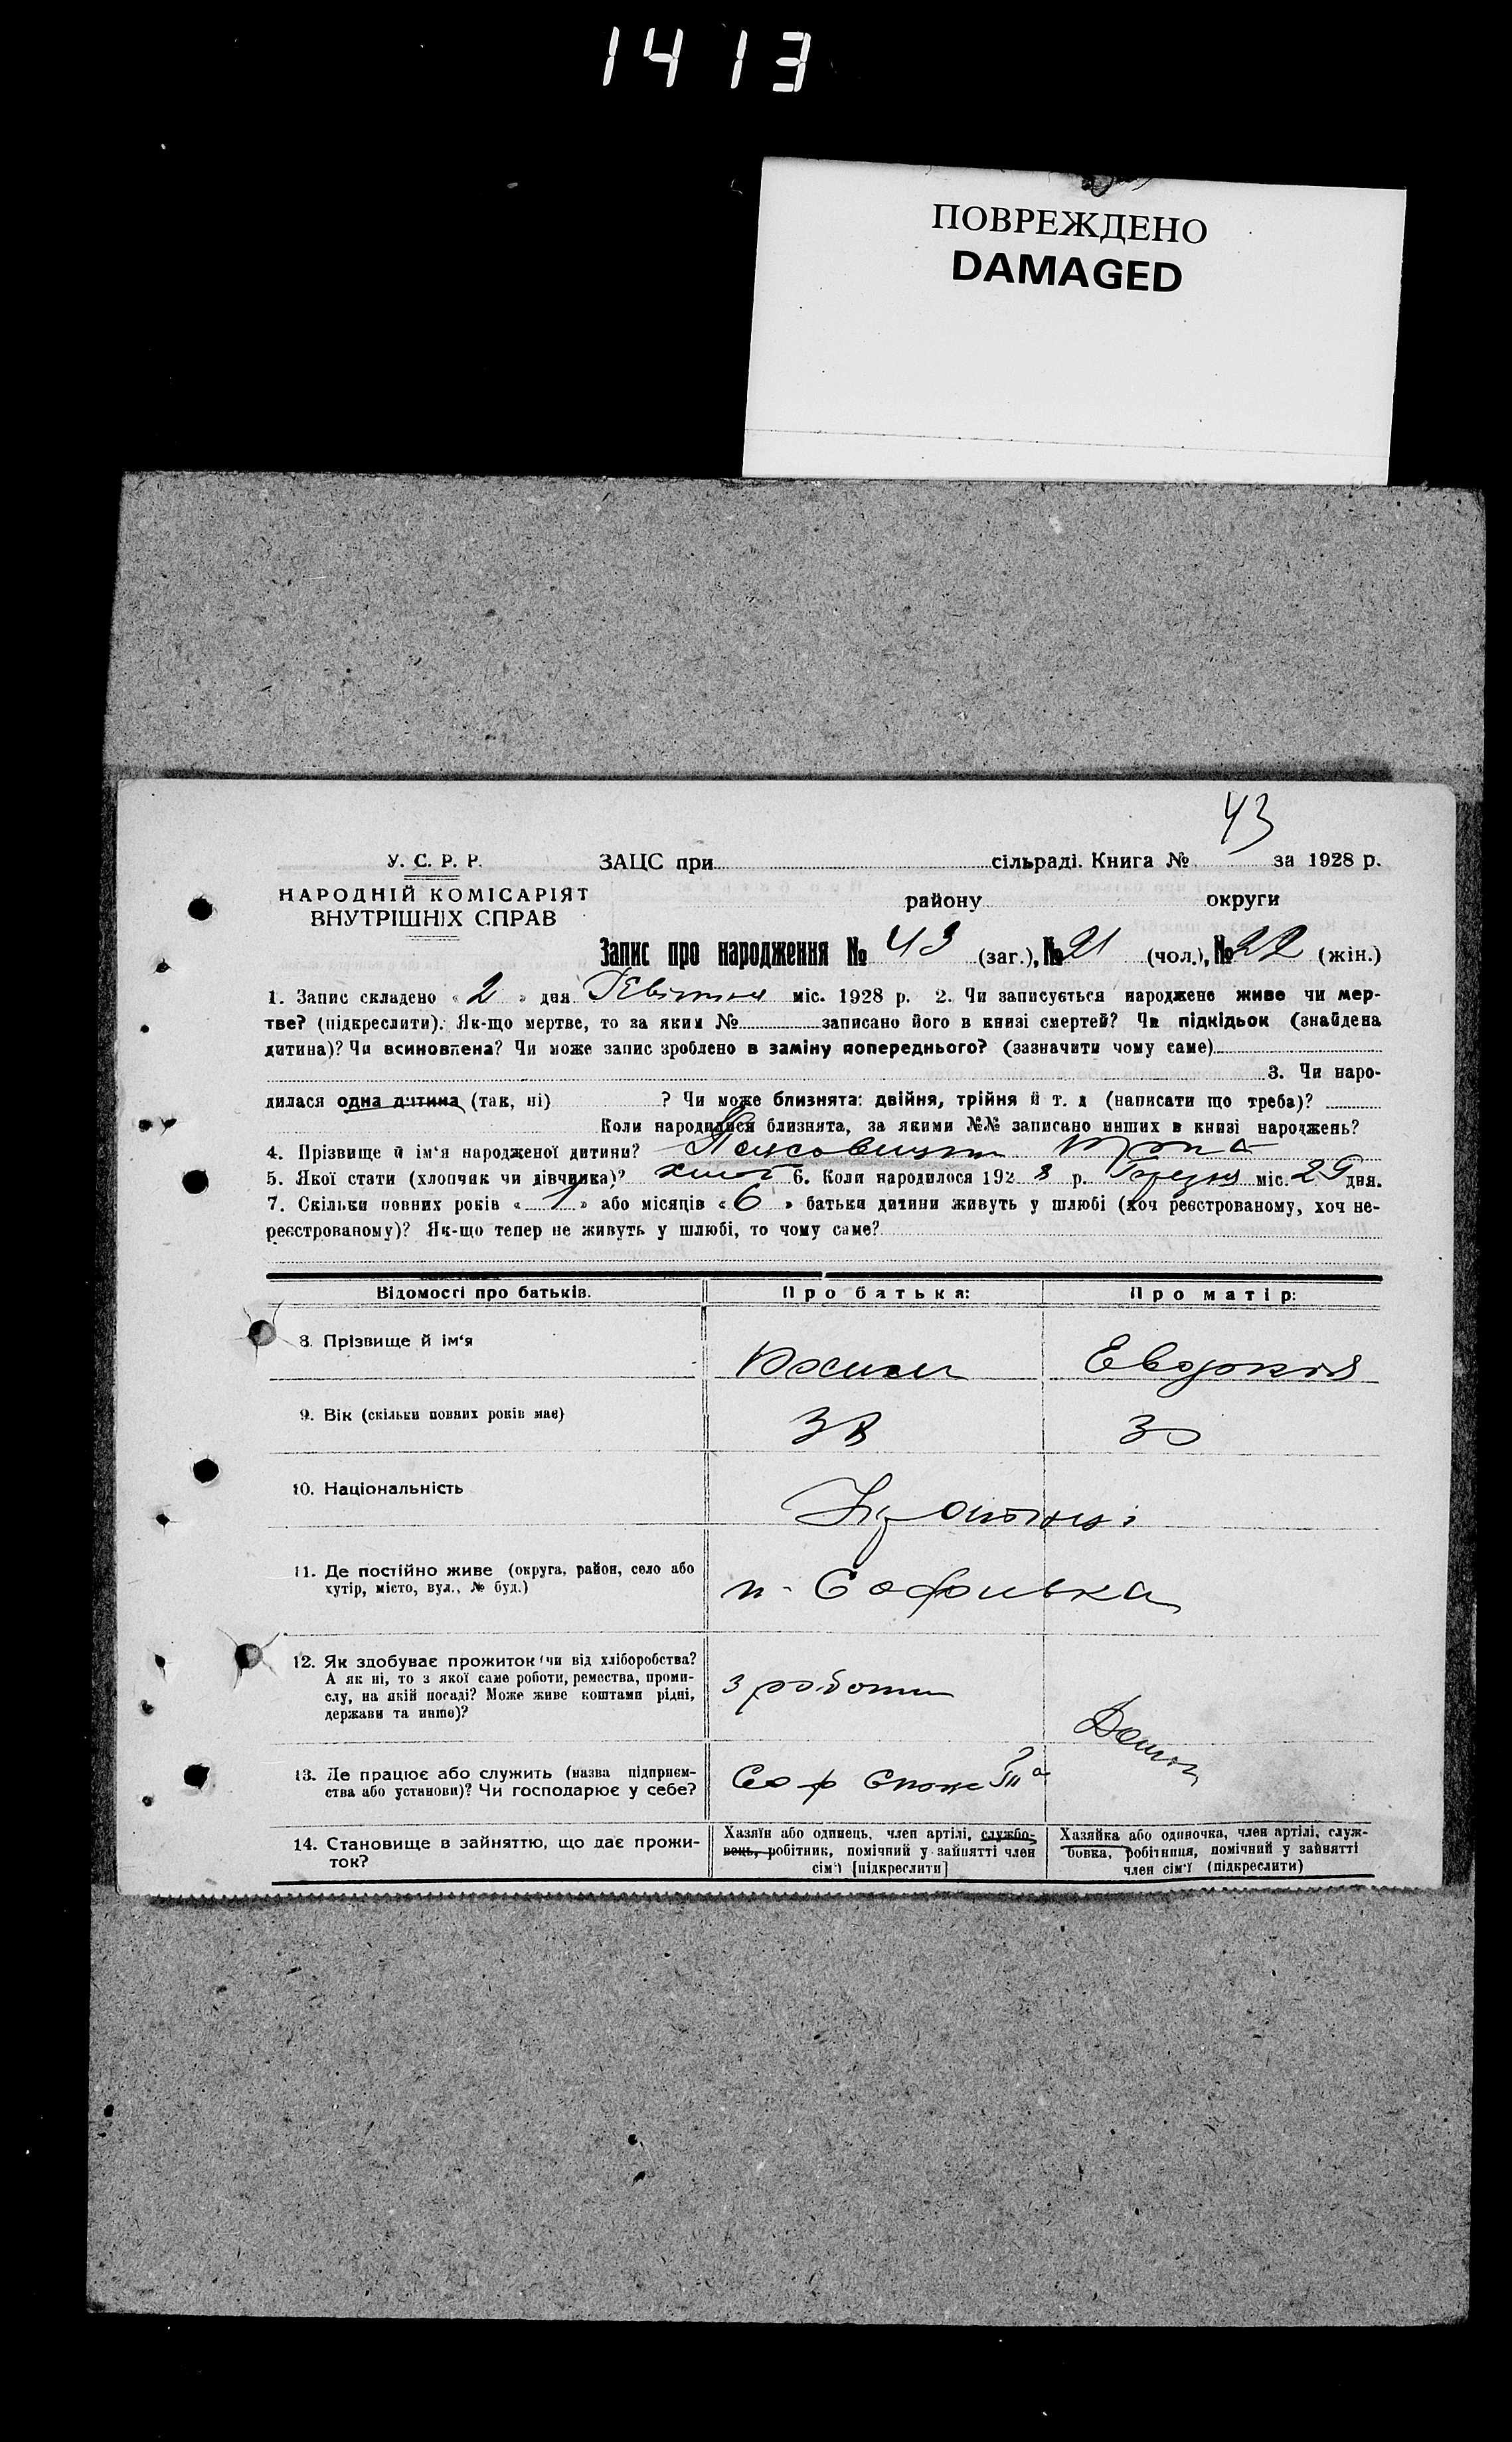 1413
ПОВРЕЖДЕНО
DAMAGED
43
У. С. Р. Р.
НАРОДНІЙ КОМІСАРІЯТ
ВНУТРІШНІХ СПРАВ
ЗАЦС при сільраді. Книга № за 1928 р.
району округи
Запис про народження № 43 (заг.), № 21 (чол.), № 22 (жін.)
1. Запис складено « 2 » дня Квітня міс. 1928 р. 2. Чи записується народжене живе чи мер-
тве? (підкреслити). Як-що мертве, то за яким № записано його в книзі смертей? Чи підкідьок (знайдена
дитина)? Чи всиновлена? Чи може запис зроблено в заміну попереднього? (зазначити чому саме)
3. Чи наро-
дилася одна дитина (так, ні) ? Чи може близнята: двійня, трійня й т. д (написати що треба)?
Коли народилися близнята, за якими №№ записано инших в книзі народжень?
4. Прізвище й ім'я народженої дитини?
5. Якої стати (хлопчик чи дівчинка)? хлоп 6. Коли народилося 192 8 р. міс. 29 дня.
7. Скільки повних років « 1 » або місяців « 6 » батьки дитини живуть у шлюбі (хоч реєстрованому, хоч не-
реєстрованому)? Як-що тепер не живуть у шлюбі, то чому саме?
Відомості про батьків. Про батька: Про матір:
8. Прізвище й ім'я
Евдокия
9. Вік (скільки повних років має)
30
10. Національність
11. Де постійно живе (округа, район, село або
хутір, місто, вул., № буд.)
Софиівка
12. Як здобуває прожиток (чи від хліборобства?
А як ні, то з якої саме роботи, ремества, проми-
слу, на якій посаді? Може живе коштами рідні,
держави та инше)?
з роботи
13. Де працює або служить (назва підприєм-
ства або установи)? Чи господарює у себе?
Соф
14. Становище в зайняттю, що дає прожи-
ток?
Хазяїн або одинець, член артілі, службо-
вець, робітник, помічний у зайнятті член
сім'ї [підкреслити]
Хазяйка або одиночка, член артілі, служ-
бовка, робітниця, помічний у зайнятті
член сім'ї (підкреслити)